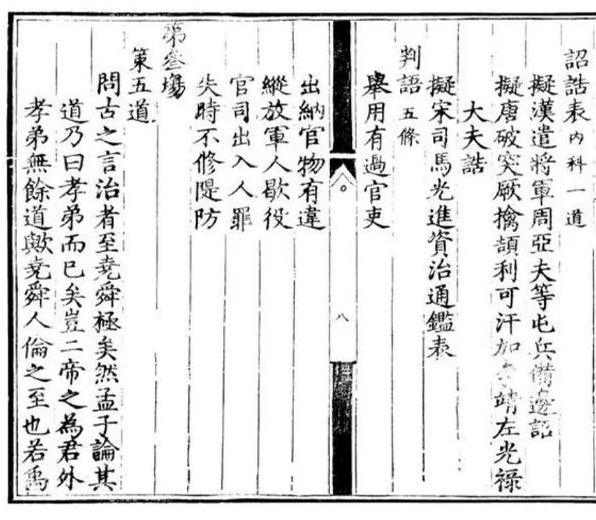 詔誥表內科一道
擬漢遣將軍周亞夫等屯兵備邊詔
擬唐破突厥擒頡利可汗加李靖左光祿
大夫誥
擬宋司馬光進資治通鑑表
判語五條
舉用有過官吏
八
出納官物有違
縱放軍人歇役
官司出入人罪
失時不修隄防
第叄場
策五道
問古之言治者至堯舜極矣然孟子論其
道乃曰孝弟而已矣豈二帝之為君外
孝弟無餘道歟堯舜人倫之至也若禹